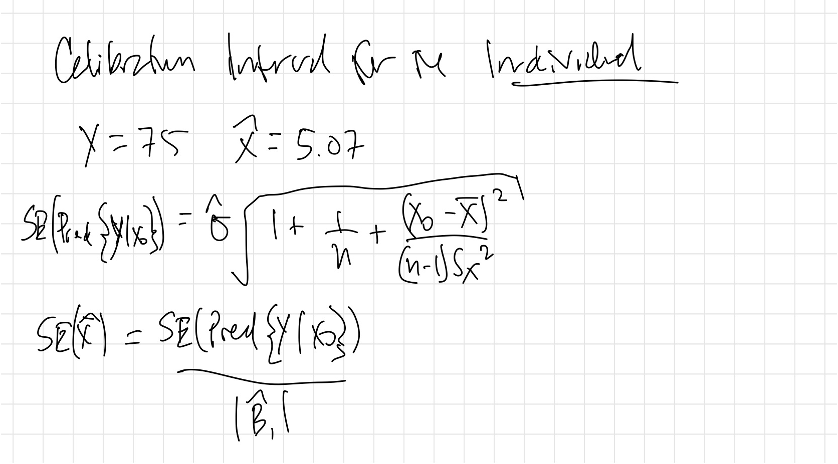 Calibration Interval for the Individual
Y = 75 X̂ = 5.07
SE(Pred{Y|X₀}) = σ̂ √(1 + 1/n + (X₀ - X̄)²/((n-1)Sx²))
SE(X̂) = SE(Pred{Y|X₀}) / |B̂₁|